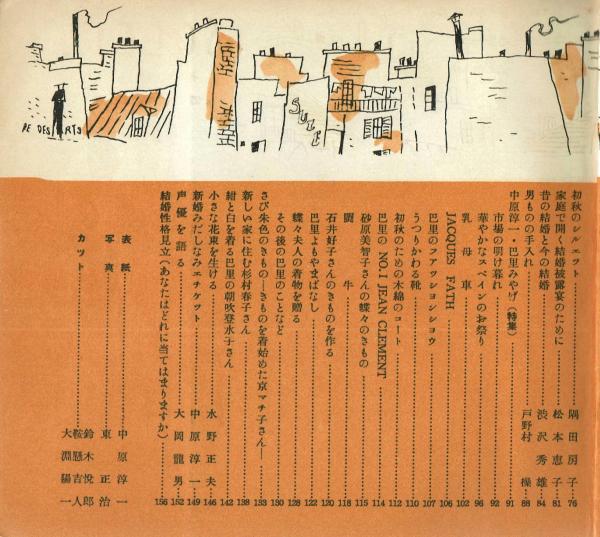 PE DES ARTS
初秋のシルエット……隅田房子 76
家庭で開く結婚披露宴のために……松本恵子 81
昔の結婚と今の結婚……渋沢秀雄 84
男ものの手入れ……戸野村操 88
中原淳一・巴里みやげ（特集）……91
市場の明け暮れ……92
華やかなスペインのお祭り……96
乳母車……102
JACQUES FATH……106
巴里のファッションショウ……107
うつりかわる靴……110
初秋のための木綿のコート……112
巴里の NO.1 JEAN CLEMENT……114
砂原美智子さんの蝶々のきもの……115
闘牛……118
石井好子さんのきものを作る……120
巴里よもやまばなし……122
蝶々夫人の着物を贈る……128
その後の巴里のことなど……130
さび朱色のきもの―きものを着始めた京マチ子さん―……133
新しい家に住む杉村春子さん……138
紺と白を着る巴里の朝吹登水子さん……142
小さな花束を生ける……水野正夫 146
新婚みだしなみエチケット……中原淳一 149
声優を語る……大岡龍男 152
結婚性格見立（あなたはどれに当てはまりますか）……156
表紙……中原淳一
写真……東正治
カット……鈴木悦郎
鞍懸吉人
大淵陽一